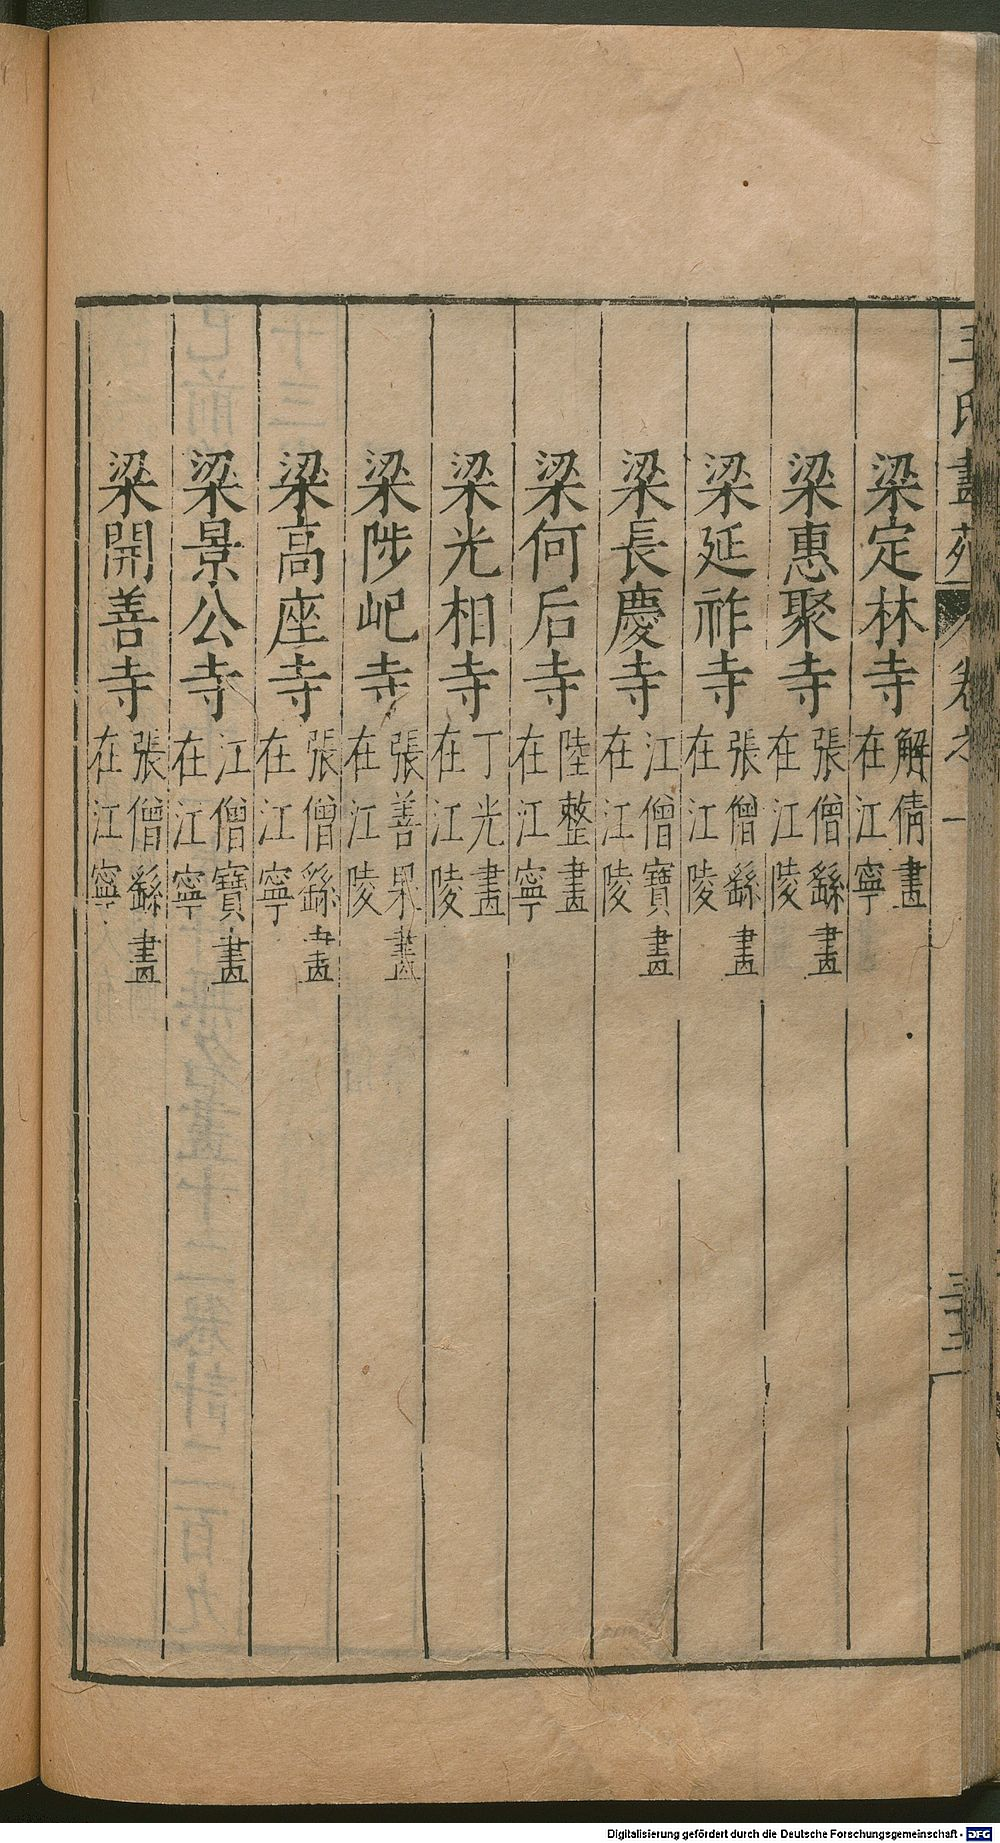 王氏畫苑 卷之一 三十二
梁定林寺 解倩畫 在江寧
梁惠聚寺 張僧繇畫 在江陵
梁延祚寺 張僧繇畫 在江陵
梁長慶寺 江僧寶畫 在江陵
梁何后寺 陸整畫 在江寧
梁光相寺 丁光畫 在江陵
梁陟屺寺 張善果畫 在江陵
梁高座寺 張僧繇畫 在江寧
梁景公寺 江僧寶畫 在江寧
梁開善寺 張僧繇畫 在江寧
Digitalisierung gefördert durch die Deutsche Forschungsgemeinschaft - DFG